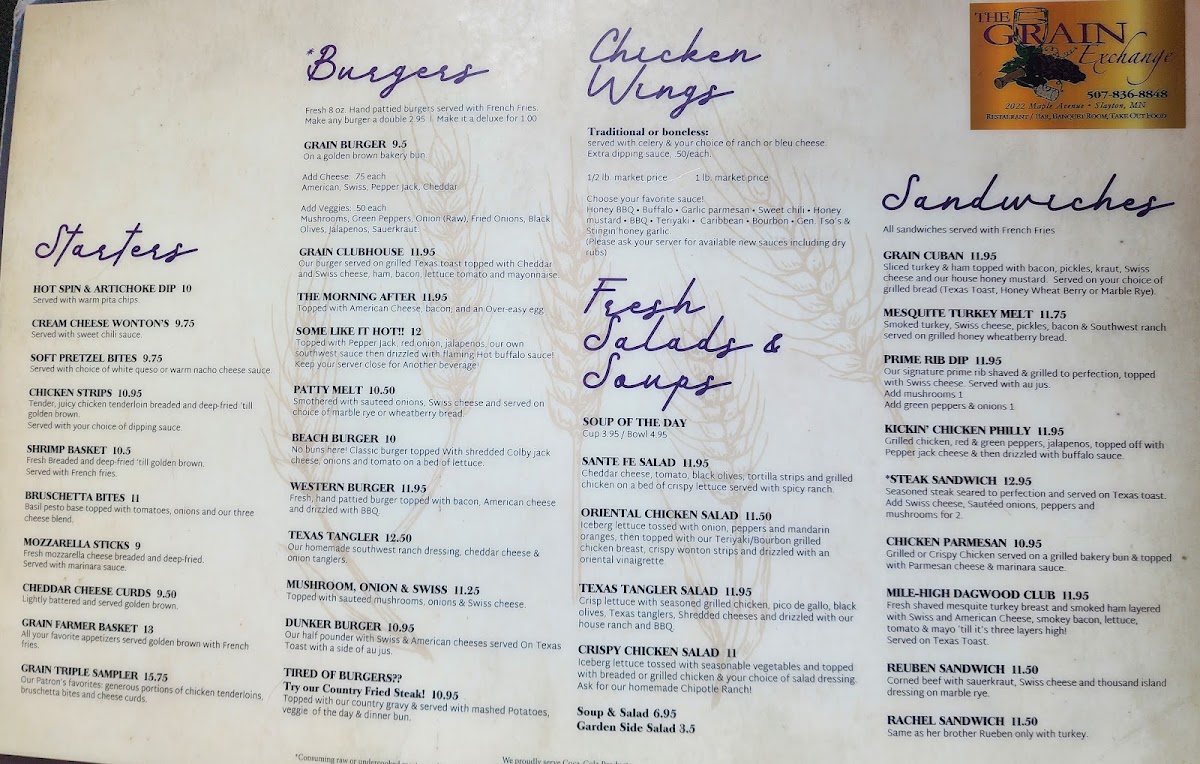 Starters
HOT SPIN & ARTICHOKE DIP 10
Served with warm pita chips.
CREAM CHEESE WONTON'S 9.75
Served with sweet chili sauce.
SOFT PRETZEL BITES 9.75
Served with choice of white queso or warm nacho cheese sauce
CHICKEN STRIPS 10.95
Tender, juicy chicken tenderloin breaded and deep-fried 'till
golden brown.
Served with your choice of dipping sauce.
SHRIMP BASKET 10.5
Fresh Breaded and deep-fried 'till golden brown.
Served with French fries.
BRUSCHETTA BITES 11
Basil pesto base topped with tomatoes, onions and our three
cheese blend.
MOZZARELLA STICKS 9
Fresh mozzarella cheese breaded and deep-fried.
Served with marinara sauce.
CHEDDAR CHEESE CURDS 9.50
Lightly battered and served golden brown.
GRAIN FARMER BASKET 13
All your favorite appetizers served golden brown with French
fries.
GRAIN TRIPLE SAMPLER 15.75
Our Patron's favorites: generous portions of chicken tenderloins,
bruschetta bites and cheese curds.
*Burgers
Fresh 8 oz. Hand pattied burgers served with French Fries.
Make any burger a double 2.95 | Make it a deluxe for 1.00
GRAIN BURGER 9.5
On a golden brown bakery bun.
Add Cheese .75 each
American, Swiss, Pepper Jack, Cheddar
Add Veggies .50 each
Mushrooms, Green Peppers, Onion (Raw), Fried Onions, Black
Olives, Jalapenos, Sauerkraut.
GRAIN CLUBHOUSE 11.95
Our burger served on grilled Texas toast topped with Cheddar
and Swiss cheese, ham, bacon, lettuce tomato and mayonnaise.
THE MORNING AFTER 11.95
Topped with American Cheese, bacon, and an Over-easy egg
SOME LIKE IT HOT!! 12
Topped with Pepper Jack, red onion, jalapenos, our own
southwest sauce then drizzled with flaming Hot buffalo sauce!
Keep your server close for Another beverage!
PATTY MELT 10.50
Smothered with sauteed onions, Swiss cheese and served on
choice of marble rye or wheatberry bread.
BEACH BURGER 10
No buns here! Classic burger topped With shredded Colby jack
cheese, onions and tomato on a bed of lettuce.
WESTERN BURGER 11.95
Fresh, hand pattied burger topped with bacon, American cheese
and drizzled with BBQ.
TEXAS TANGLER 12.50
Our homemade southwest ranch dressing, cheddar cheese &
onion tanglers.
MUSHROOM, ONION & SWISS 11.25
Topped with sauteed mushrooms, onions & Swiss cheese.
DUNKER BURGER 10.95
Our half pounder with Swiss & American cheeses served On Texas
Toast with a side of au jus.
TIRED OF BURGERS??
Try our Country Fried Steak! 10.95
Topped with our country gravy & served with mashed Potatoes,
veggie of the day & dinner bun.
*Consuming raw or undercooked
Chicken
Wings
Traditional or boneless:
served with celery & your choice of ranch or bleu cheese.
Extra dipping sauce .50/each.
1/2 lb. market price 1 lb. market price
Choose your favorite sauce!
Honey BBQ • Buffalo • Garlic parmesan • Sweet chili • Honey
mustard • BBQ • Teriyaki • Caribbean • Bourbon • Gen. Tso's &
Stingin'honey garlic
(Please ask your server for available new sauces including dry
rubs)
Fresh
Salads &
Soups
SOUP OF THE DAY
Cup 3.95 / Bowl 4.95
SANTE FE SALAD 11.95
Cheddar cheese, tomato, black olives, tortilla strips and grilled
chicken on a bed of crispy lettuce served with spicy ranch.
ORIENTAL CHICKEN SALAD 11.50
Iceberg lettuce tossed with onion, peppers and mandarin
oranges, then topped with our Teriyaki/Bourbon grilled
chicken breast, crispy wonton strips and drizzled with an
oriental vinaigrette.
TEXAS TANGLER SALAD 11.95
Crisp lettuce with seasoned grilled chicken, pico de gallo, black
olives, Texas tanglers, Shredded cheeses and drizzled with our
house ranch and BBQ.
CRISPY CHICKEN SALAD 11
Iceberg lettuce tossed with seasonable vegetables and topped
with breaded or grilled chicken & your choice of salad dressing.
Ask for our homemade Chipotle Ranch!
Soup & Salad 6.95
Garden Side Salad 3.5
We proudly serve Coca-Cola
THE
GRAIN
Exchange
507-836-8848
2022 Maple Avenue • Slayton, MN
RESTAURANT / BAR, BANQUET ROOM, TAKE OUT FOOD
Sandwiches
All sandwiches served with French Fries
GRAIN CUBAN 11.95
Sliced turkey & ham topped with bacon, pickles, kraut, Swiss
cheese and our house honey mustard. Served on your choice of
grilled bread (Texas Toast, Honey Wheat Berry or Marble Rye).
MESQUITE TURKEY MELT 11.75
Smoked turkey, Swiss cheese, pickles, bacon & Southwest ranch
served on grilled honey wheatberry bread.
PRIME RIB DIP 11.95
Our signature prime rib shaved & grilled to perfection, topped
with Swiss cheese. Served with au jus.
Add mushrooms 1
Add green peppers & onions 1
KICKIN' CHICKEN PHILLY 11.95
Grilled chicken, red & green peppers, jalapenos, topped off with
Pepper jack cheese & then drizzled with buffalo sauce.
*STEAK SANDWICH 12.95
Seasoned steak seared to perfection and served on Texas toast.
Add Swiss cheese, Sautéed onions, peppers and
mushrooms for 2.
CHICKEN PARMESAN 10.95
Grilled or Crispy Chicken served on a grilled bakery bun & topped
with Parmesan cheese & marinara sauce.
MILE-HIGH DAGWOOD CLUB 11.95
Fresh shaved mesquite turkey breast and smoked ham layered
with Swiss and American Cheese, smokey bacon, lettuce,
tomato & mayo 'till it's three layers high!
Served on Texas Toast.
REUBEN SANDWICH 11.50
Corned beef with sauerkraut, Swiss cheese and thousand island
dressing on marble rye.
RACHEL SANDWICH 11.50
Same as her brother Rueben only with turkey.